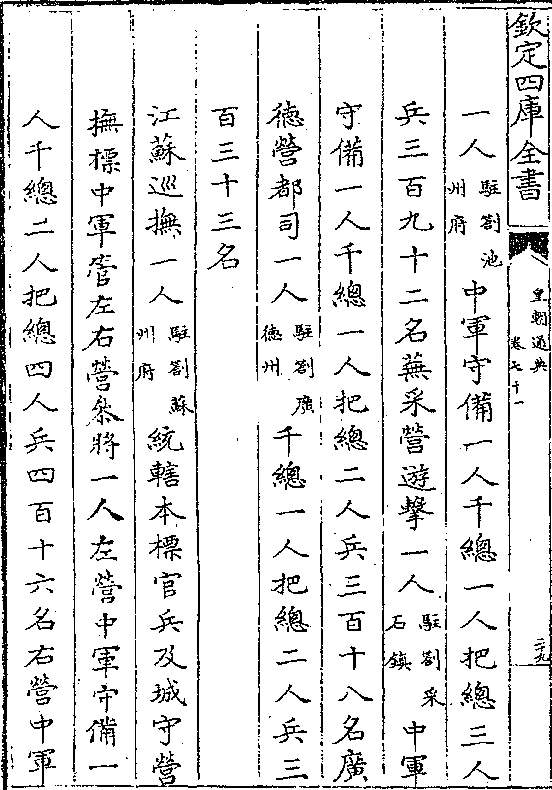 欽定四庫全書
皇朝通典
卷七十一
二十九
一人駐劄池州府中軍守備一人千總一人把總三人
兵三百九十二名蕪采營遊擊一人駐劄采石鎮中軍
守備一人千總一人把總二人兵三百十八名廣
德營都司一人駐劄廣德州千總一人把總二人兵三
百三十三名
江蘇巡撫一人駐劄蘇州府統轄本標官兵及城守營
撫標中軍管左右營叅將一人左營中軍守備一
人千總二人把總四人兵四百十六名右營中軍